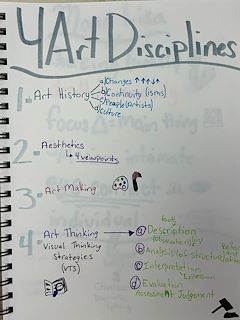 4 Art Disciplines
1- Art History
a) Changes ↑↑↓↑↓
b) Continuity (isms)
c) People (Artists)
d) Culture
2- Aesthetics
↳ 4 viewpoints
3- Art Making
4- Art Thinking
Visual Thinking
Strategies
(VTS)
a) Description
(observation)
b) Analysis of structure
c) Interpretation
Expression
d) Evaluation
Assessment Judgement